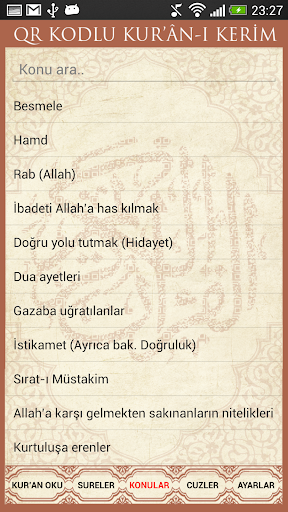 23:27
QR KODLU KUR'ÂN-I KERİM
Konu ara..
Besmele
Hamd
Rab (Allah)
İbadeti Allah'a has kılmak
Doğru yolu tutmak (Hidayet)
Dua ayetleri
Gazaba uğratılanlar
İstikamet (Ayrıca bak. Doğruluk)
Sırat-ı Müstakim
Allah'a karşı gelmekten sakınanların nitelikleri
Kurtuluşa erenler
KUR'AN OKU SURELER KONULAR CUZLER AYARLAR